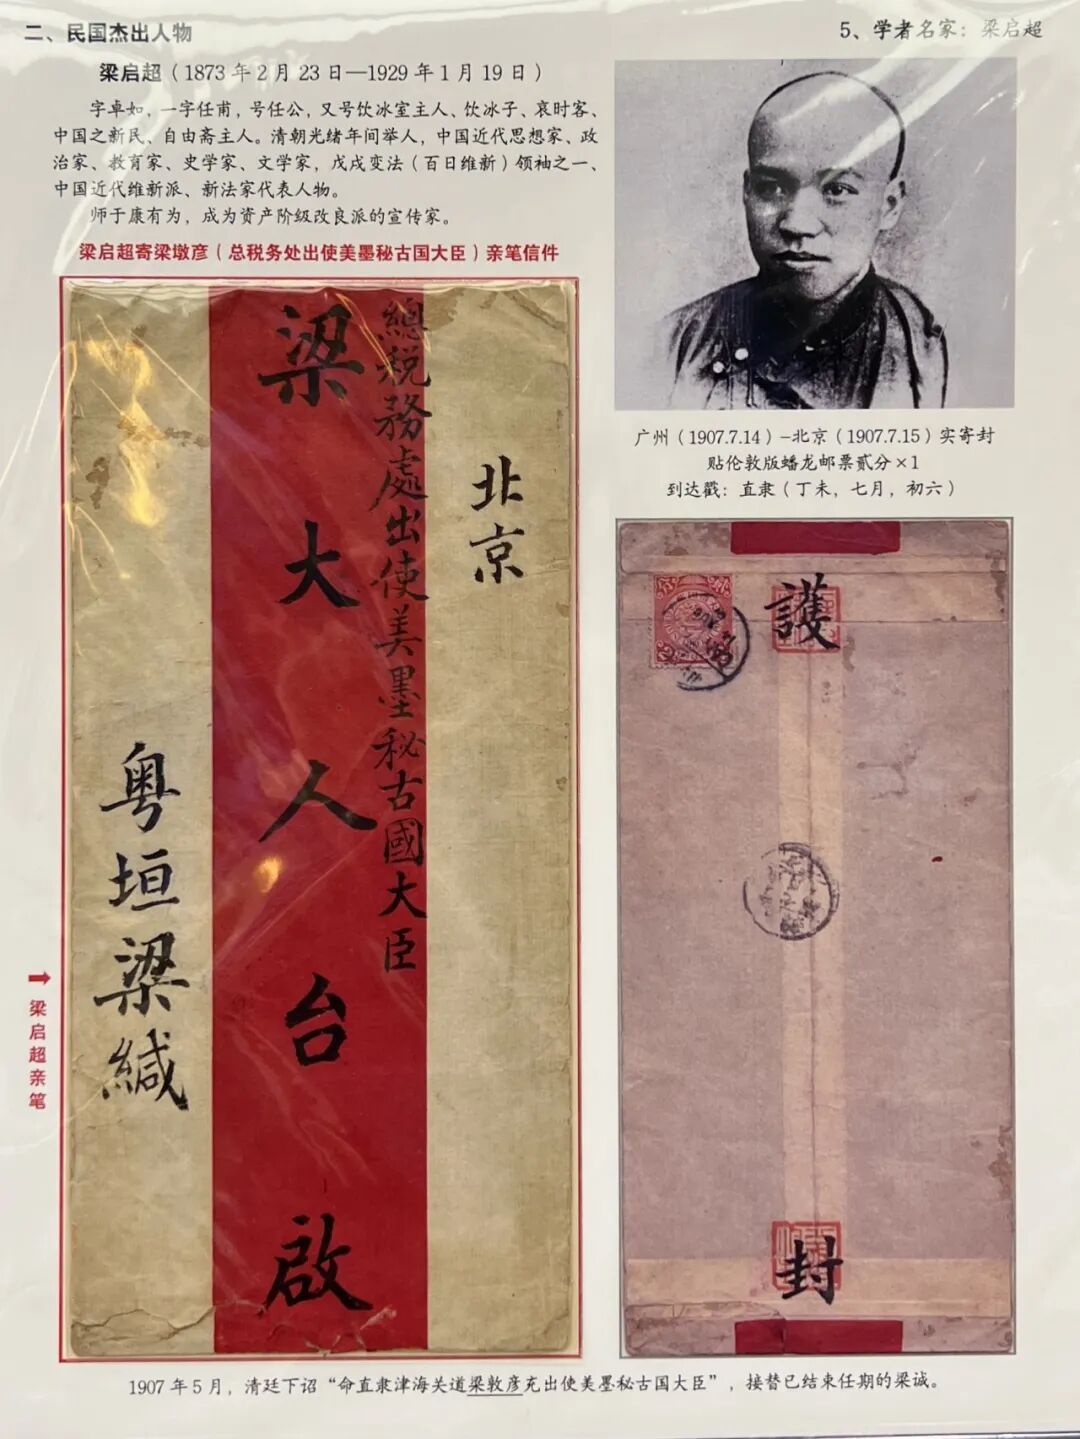 二、民国杰出人物
5、学者名家：梁启超
梁启超（1873 年 2 月 23 日—1929 年 1 月 19 日）
字卓如，一字任甫，号任公，又号饮冰室主人、饮冰子、哀时客、
中国之新民、自由斋主人。清朝光绪年间举人，中国近代思想家、政
治家、教育家、史学家、文学家，戊戌变法（百日维新）领袖之一、
中国近代维新派、新法家代表人物。
师于康有为，成为资产阶级改良派的宣传家。
梁启超寄梁墩彦（总税务处出使美墨秘古国大臣）亲笔信件
北京
總税務處出使美墨秘古國大臣
梁大人台啟
粤垣梁緘
梁启超亲笔
广州（1907.7.14）-北京（1907.7.15）实寄封
贴伦敦版蟠龙邮票贰分×1
到达戳：直隶（丁未，七月，初六）
護
封
1907 年 5 月，清廷下诏“命直隶津海关道梁敦彦充出使美墨秘古国大臣”，接替已结束任期的梁诚。